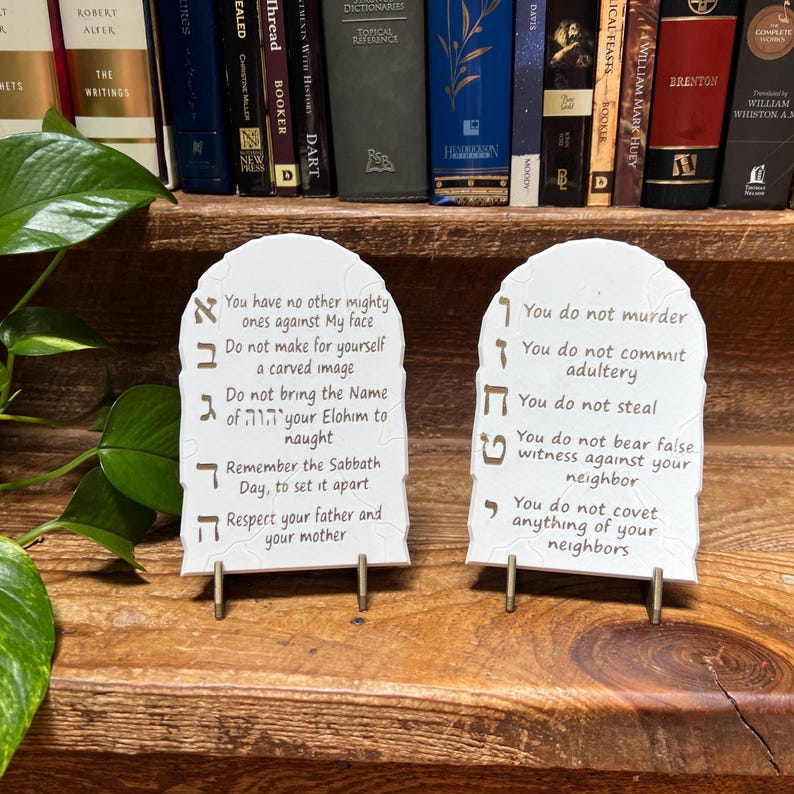 HETS
ROBERT
ALTER
THE
WRITINGS
CHRISTINE MILLER
NOTHING
NEW
PRESS
Thread
BOOKER
WITH HISTORY
DART
DICTIONARIES
TOPICAL
REFERENCE
RSB
HENDRICKSON
BIBLES
DAVIS
MOODY
Pure
Gold
FEASTS
BOOKER
WILLIAM MARK HUEY
BRENTON
THE
COMPLETE
WORKS
Translated by
WILLIAM
WHISTON, A.M.
THOMAS
NELSON
א You have no other mighty
ones against My face
ב Do not make for yourself
a carved image
ג Do not bring the Name
of יהוה your Elohim to
naught
ד Remember the Sabbath
Day, to set it apart
ה Respect your father and
your mother
ו You do not murder
ז You do not commit
adultery
ח You do not steal
ט You do not bear false
witness against your
neighbor
י You do not covet
anything of your
neighbors